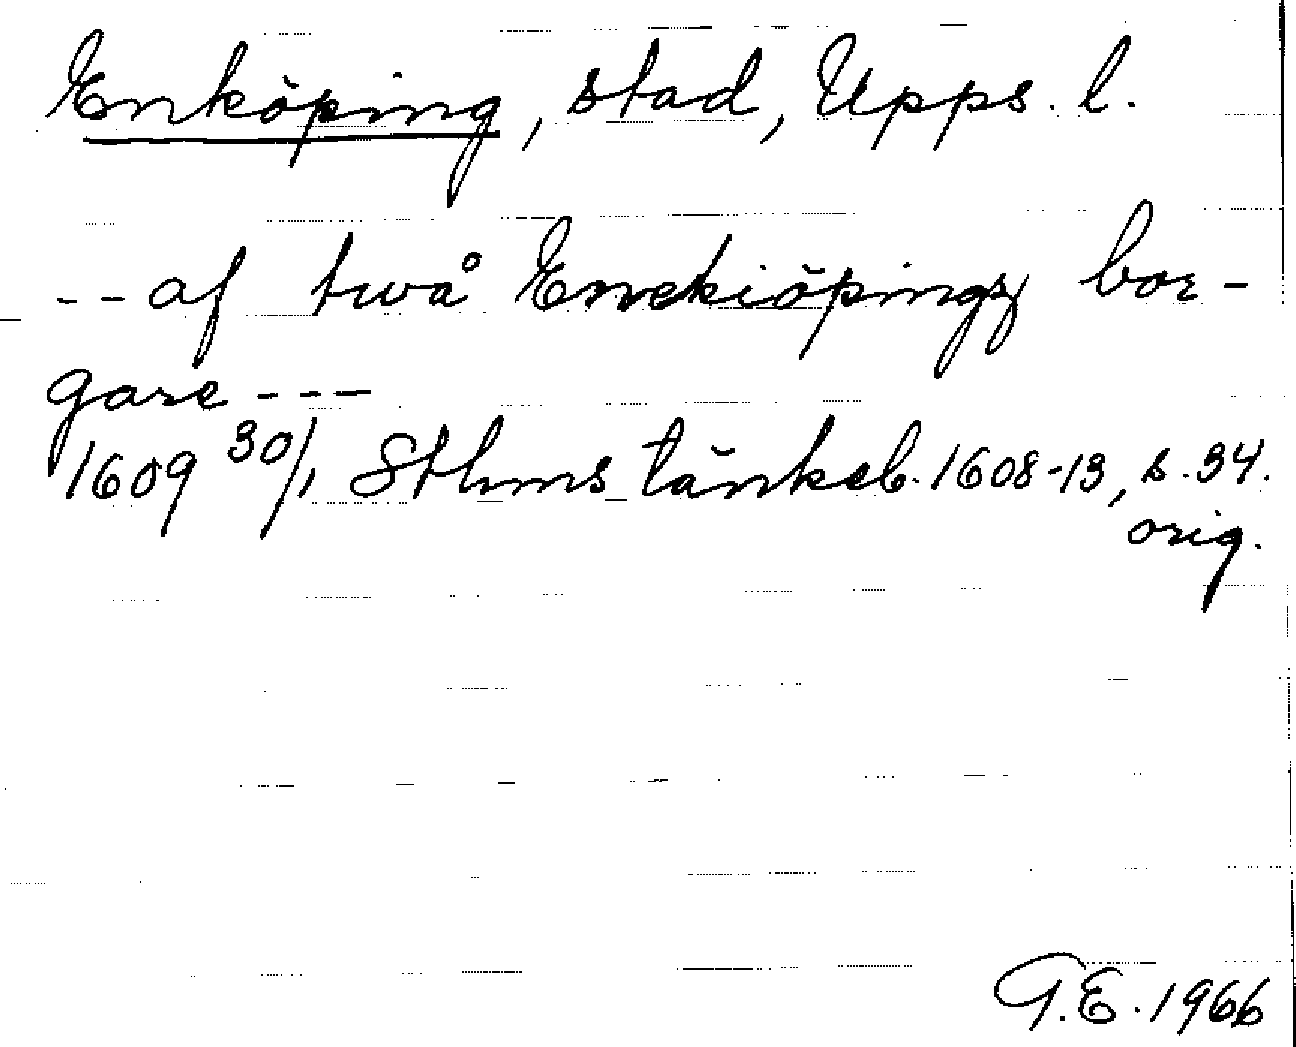 Enköping, stad, Upps. l.
-- af twå Enekiöpingz bor-
gare ---
1609 30/1 Sthms tänkeb. 1608-13, s. 34.
orig.
G.E. 1966